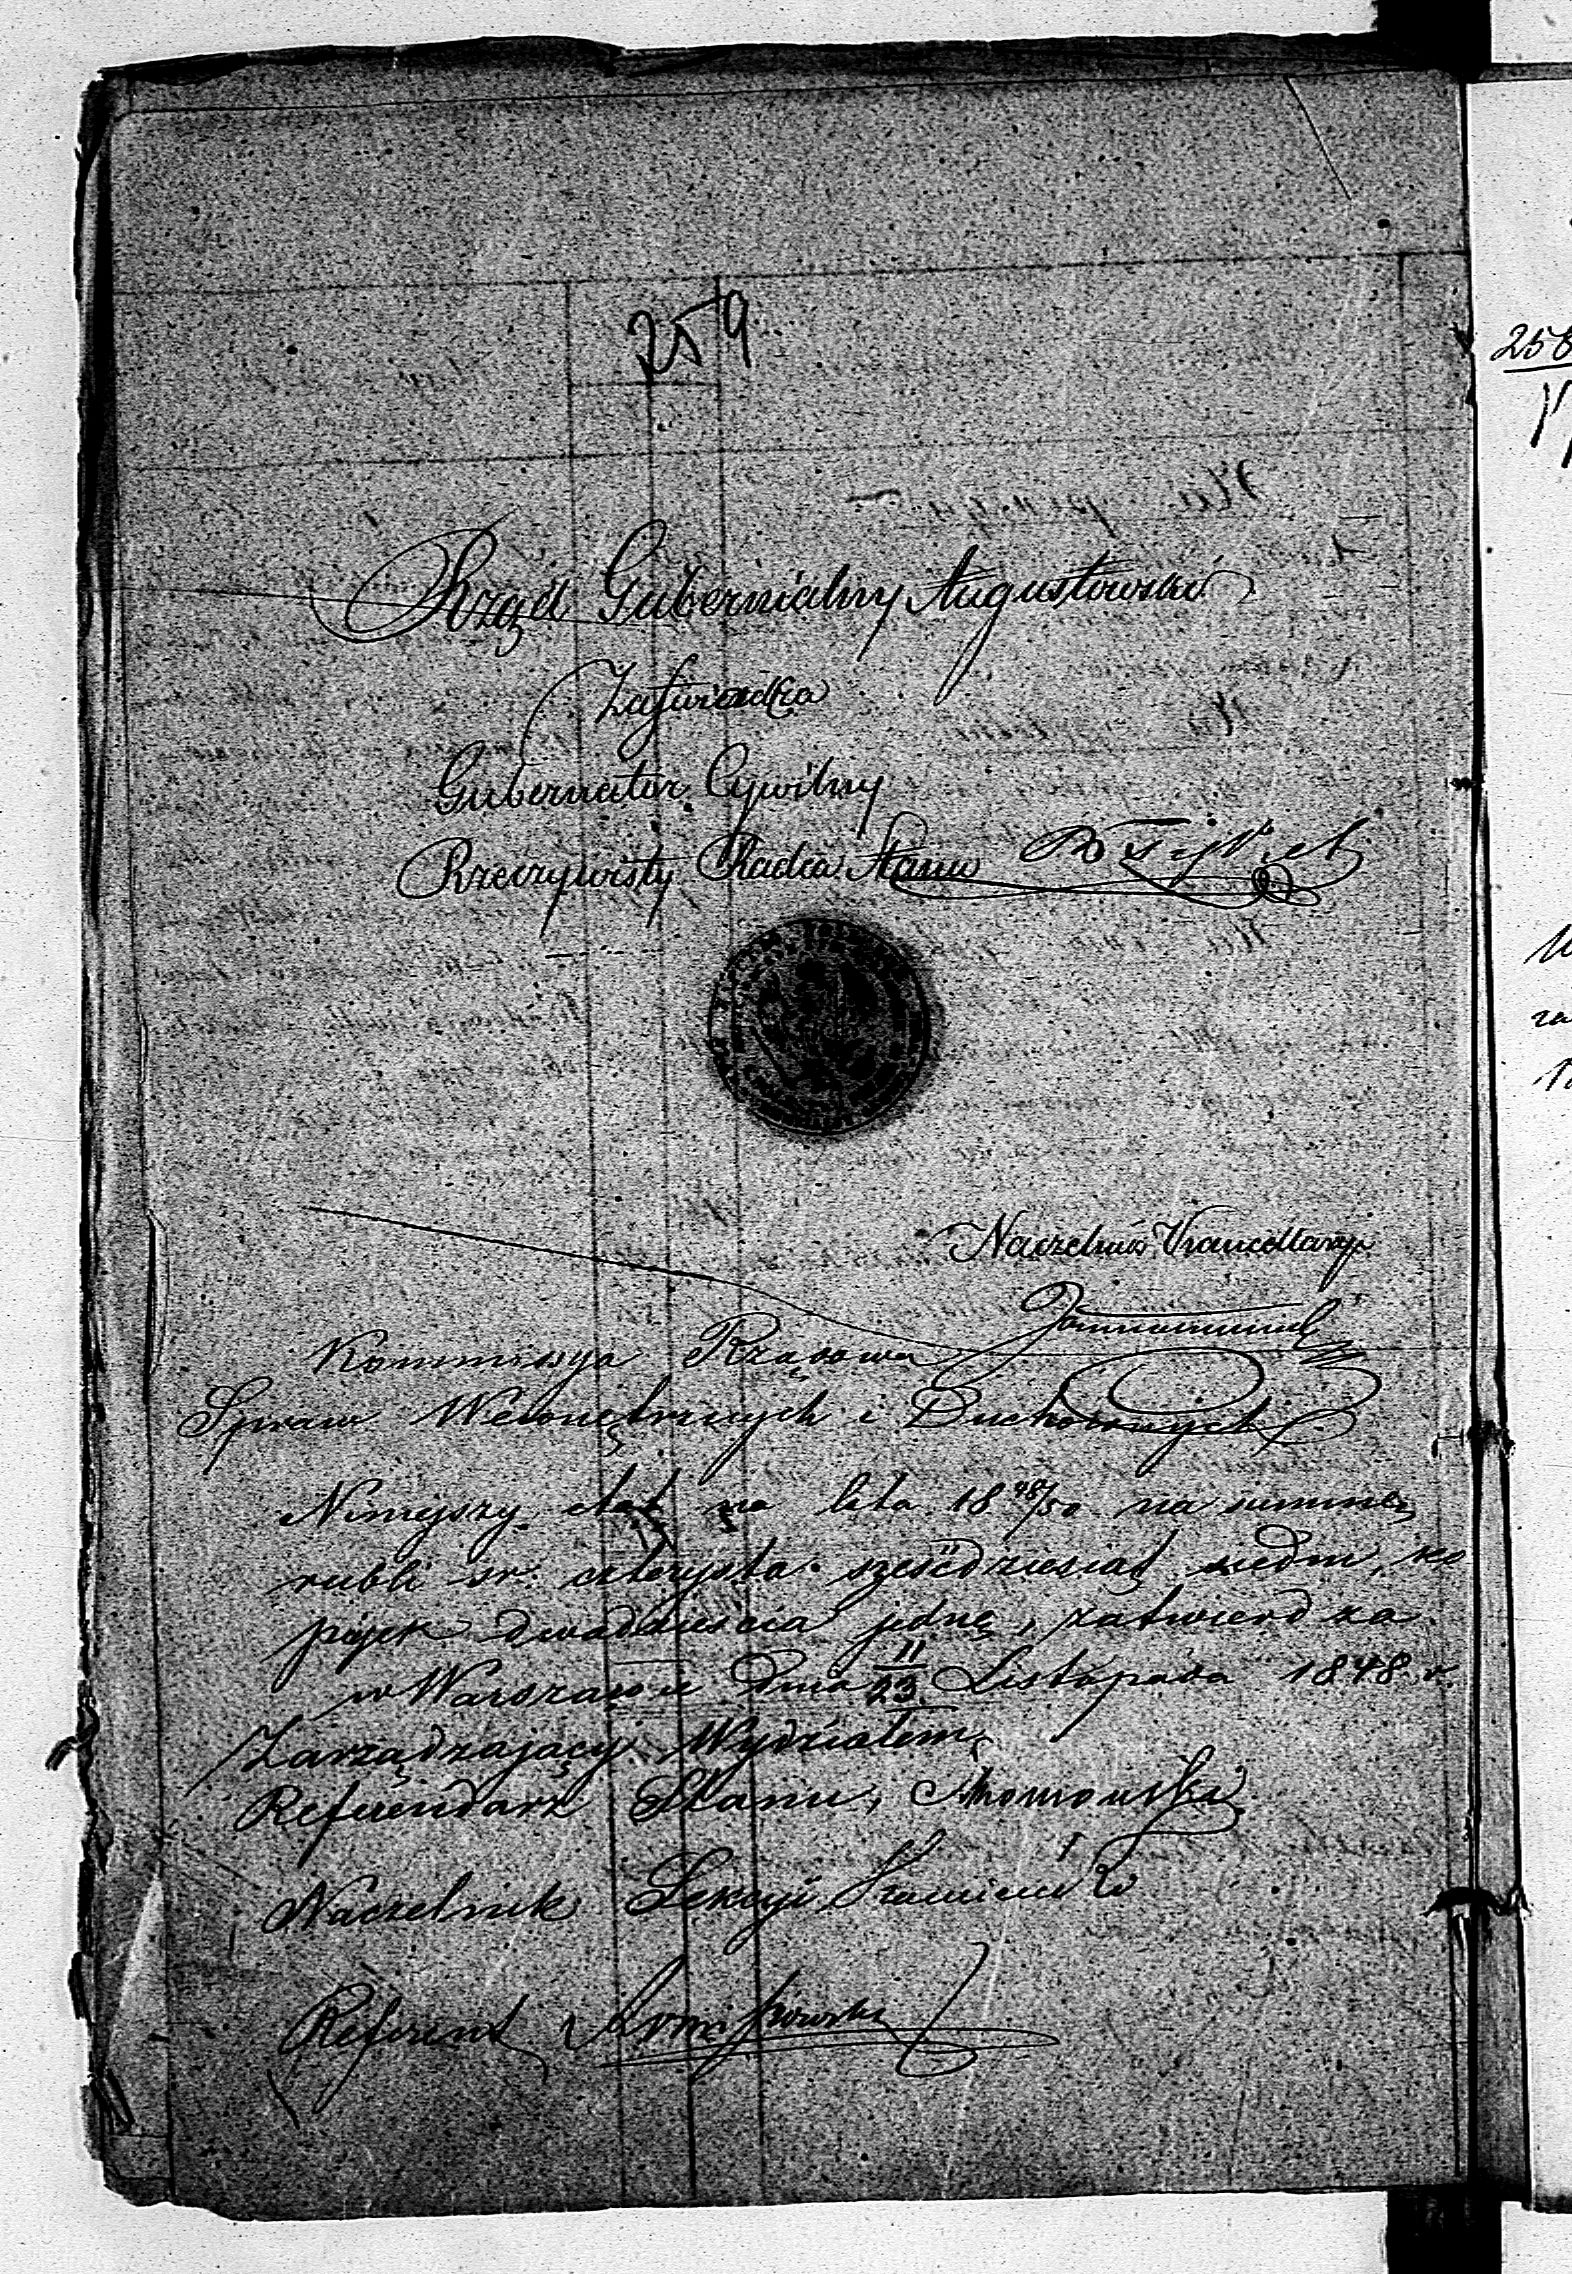 259
Rząd Gubernialny Augustowski
Zatwierdza
Gubernator Cywilny
Rzeczywisty Radca Stanu
Naczelnik Kancellaryi
Kommissya Rządowa
Spraw Wewnętrznych i Duchownych
Niniejszy etat na lata 18 48/50 na summę
rubli sr. czterysta sześćdziesiąt siedm, ko
piejek dwadzieścia jedną, zatwierdza
w Warszawie dnia 11/23 Listopada 1848 r.
Zarządzający Wydziałem,
Referendarz Stanu,
Naczelnik Sekcyi
Referent